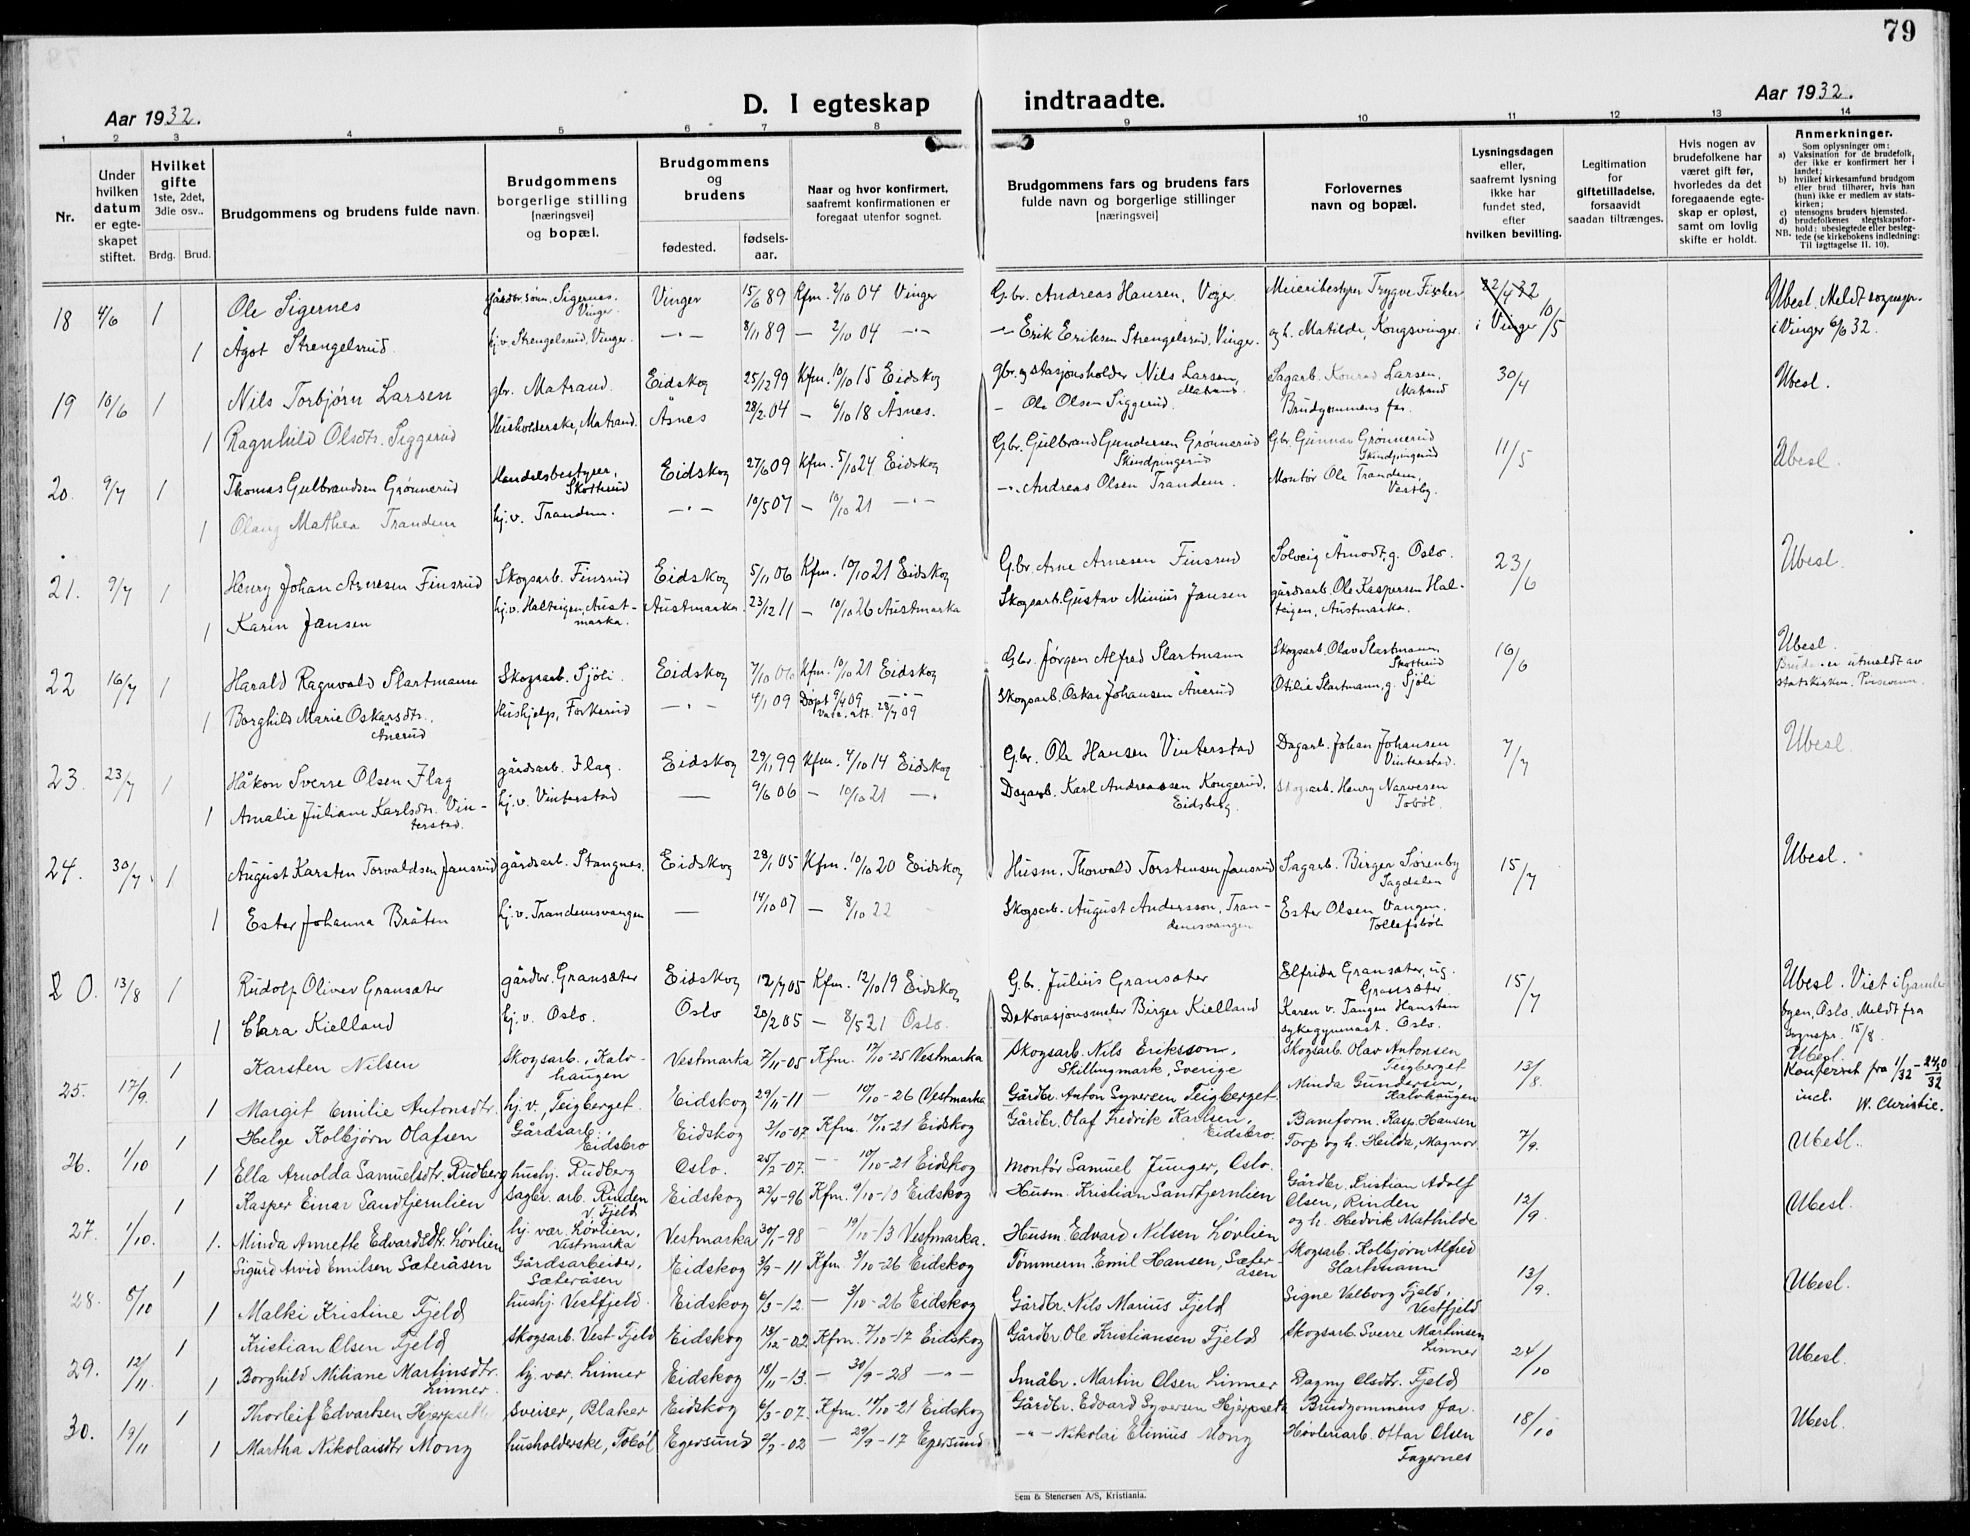 79
Aar 1932.
D. I egteskap indtraadte.
Aar 1932.
1 2 3 4 5 6 7 8 9 10 11 12 13 14
Nr.
Under hvilken datum er egteskapet stiftet.
Hvilket gifte 1ste, 2det, 3die osv..
Brdg. Brud.
Brudgommens og brudens fulde navn.
Brudgommens borgerlige stilling [næringsvei] og bopæl.
Brudgommens og brudens
fødested.
fødsels-aar.
Naar og hvor konfirmert, saafremt konfirmationen er foregaat utenfor sognet.
Brudgommens fars og brudens fars fulde navn og borgerlige stillinger [næringsvei]
Forlovernes navn og bopæl.
Lysningsdagen eller, saafremt lysning ikke har fundet sted, efter hvilken bevilling.
Legitimation for giftetilladelse, forsaavidt saadan tiltrænges.
Hvis nogen av brudefolkene har været gift før, hvorledes da det foregaaende egteskap er opløst, samt om lovlig skifte er holdt.
Anmerkninger.
Som oplysninger om:
a) Vaksination for de brudefolk, der ikke er konfirmert her i landet;
b) hvilket kirkesamfund brudgom eller brud tilhører, hvis han (hun) ikke er medlem av statskirken;
c) utensogns bruders hjemsted.
d) brudefolkenes slegtskapsforhold: ubeslegtede eller beslegtede (se kirkebokens indledning:
NB. Til iagttagelse II. 10).
18 4/6 1 Ole Sigernes Gårdbr.sønn, Sigernes. Vinger. Vinger 15/6 89 Kfm. 2/10 04 Vinger G.br. Andreas Hansen, Meieribestyrer Trygve Fischer 22/4 32 Ubesl. Meldt sognepr.
1 Ågot Strengelsrud. hj.v. Strengelsrud, Vinger. —"— 8/11 89 — 2/10 04 —"— —"— Erik Eriksen Strengelsrud. Vinger. og h. Matilde, Kongsvinger. i Vinger 10/5 i Vinger 6/6 32.
19 10/6 1 Nils Torbjørn Larsen gbr. Matrand. Eidskog 25/12 99 Kfm. 10/10 15 Eidskog gbr. og stasjonsholder Nils Larsen, Matrand. Sagarb. Konrad Larsen. Matrand 30/4 Ubesl.
1 Ragnhild Olsdtr. Siggerud Husholderske, Matrand. Åsnes 28/2 04 — 6/10 18 Åsnes. — Ole Olsen Siggerud. Brudgommens far.
20. 9/7 1 Thomas Gulbrandsen Grønnerud Handelsbestyrer, Skotterud Eidskog 27/6 09 Kfm. 5/10 24 Eidskog Gbr. Gulbrand Gundersen Grønnerud Skindpingerud Gbr. Gunnar Grønnerud Skindpingerud 11/5 Ubesl.
1 Olaug Mathea Trandem hj.v. Trandem. —"— 10/5 07 — 10/10 21 —"— —"— Andreas Olsen Trandem. Montør Ole Trandem, Vestby.
21. 9/7 1 Henry Johan Arnesen Finsrud Skogsarb. Finsrud Eidskog 5/11 06 Kfm. 10/10 21 Eidskog G.br. Arne Arnesen Finsrud Solveig Åmodt, g. Oslo. 23/6 Ubesl.
1 Karin Jansen hj.v. Halteigen, Austmarka. Austmarka. 23/12 11 — 10/10 26 Austmarka Skogsarb. Gustav Minius Jansen gårdsarb. Ole Kaspersen Halteigen, Austmarka.
22 16/7 1 Harald Ragnvald Slartmann Skogsarb. Sjøli. Eidskog 7/10 06 Kfm. 10/10 21 Eidskog Gbr. Jørgen Alfred Slartmann Skogsarb. Olav Slartmann, Skotterud 16/6 Ubesl.
1 Borghild Marie Oskarsdtr. Ånerud Hushjelp, Forkerud —"— 4/1 09 Døpt 9/4 09 —"— Vacc. att. 28/7 09 Skogsarb. Oskar Johansen Ånerud Otilie Slartmann, g. Sjöli Bruden er utmeldt av statskirken.
23. 23/7 1 Håkon Sverre Olsen Flag gårdsarb. Flag. Eidskog 29/11 99 Kfm. 4/10 14 Eidskog G.br. Ole Hansen Vinterstad Dagarb. Johan Johansen Vinterstad. 7/7 Ubesl.
1 Amalie Juliane Karlsdtr. Vinterstad. hj.v. Vinterstad — 9/6 06 — 10/10 21 —"— Dagarb. Karl Andreassen Kongerud, Eidsberg. Skogsarb. Henry Narvesen Tobøl.
24. 30/7. 1 August Karsten Torvaldsen Jansrud gårdsarb. Stangnes. Eidskog 28/1 05 Kfm. 10/10 20 Eidskog Husm. Thorvald Torstensen Jansrud Sagarb. Birger Sørenby Sagdalen 15/7 Ubesl.
1 Ester Johanna Bråten hj.v. Trandemsvangen — 14/10 07 — 8/10 22 Skogsarb. August Andersson, Trandemsvangen Ester Olsen Vangen. Tollefsbøl
20. 13/8 1 Rudolf Oliver Gransæter gårdbr. Gransæter Eidskog 12/7 05 Kfm. 12/10 19 Eidskog G.br. Julius Gransæter Elfrida Gransæter, ug. Gransæter 15/7 Ubesl. Viet i Gamlebyen, Oslo. Meldt fra sognepr. 15/8.
1 Clara Kielland hj.v. Oslo. Oslo 20/2 05 — 8/5 21 Oslo. Dekorasjonsmaler Birger Kielland Karen v. Tangen Hansten sykegymnast. Oslo.
25. 17/9. 1 Karsten Nilsen Skogsarb., Kalvhaugen Vestmarka 7/11-05 Kfm. 17/10-25 Vestmarka Skogsarb. Nils Eriksson, Skillingmark, Sverige Skogsarb. Olav Antonsen Teigberget 13/8. Ubesl. Konferert fra 1/1 32 - 24/10 32 incl. W. Christie.
1 Margit Emilie Antonsdtr. hj.v., Teigberget. Eidskog 29/11-11 — 10/10-26 Vestmarka Gårdbr. Anton Syversen Teigberget. Minda Gundersen, Kalvhaugen
26. 1/10 1 Helge Kolbjørn Olafsen Gårdsarb., Eidsbro Eidskog 3/10-07. Kfm. 10/10-21 Eidskog Gårdbr. Olaf Fredrik Karlsen, Eidsbro. Baneform. Kasp. Hansen 7/9. Ubesl.
1 Ella Arnolda Samuelsdtr. Rudberg hushj. Rudberg Oslo. 25/2-07. — 10/10-21 Eidskog Montør Samuel Junger, Oslo. Torp og h. Hilda, Magnor
27. 1/10. 1 Kasper Einar Sandtjernlien Sagbr. arb. Rinden v. Fjeld Eidskog 22/4-96 Kfm. 9/10-10 Eidskog Husm. Kristian Sandtjernlien Gårdbr. Kristian Adolf Olsen, Rinden 12/9. Ubesl.
1. Minda Annette Edvardsdtr. Løvlien hj. vær. Løvlien, Vestmarka Vestmarka 30/1-98 — 19/10-13 Vestmarka. Husm. Edvard Nilsen Løvlien og h. Hedvik Mathilde
28. 8/10 1 Sigurd Arvid Emilsen Sæteråsen Gårdsarbeider, Sæteråsen Eidskog 3/9-11 Kfm. 3/10-26 Eidskog Tømmerm. Emil Hansen, Sæteråsen Skogsarb. Kolbjørn Alfred Slartmann 13/9. Ubesl.
1 Malki Kristine Fjeld hushj. Vestfjeld. Eidskog 6/3-12. — 3/10-26 Eidskog Gårdbr. Nils Marius Fjeld Signe Valborg Fjeld, Vestfjeld
29. 12/11. 1 Kristian Olsen Fjeld Skogsarb. Vest-Fjeld Eidskog 13/12-02 Kfm. 7/10-17 Eidskog Gårdbr Ole Kristiansen Fjeld Skogsarb. Sverre Martinsen Linner 24/10 Ubesl.
1 Borghild Miliane Martinsdtr. Linner. hj. vær. Linner Eidskog 18/11-13. — 30/9-28 —"— Småbr. Martin Olsen Linner Dagny Olsdtr. Fjeld
30. 19/11 1 Thorleif Edvartsen Hjerpset Sveiser, Blaker Eidskog 6/3-07. Kfm. 10/10-21 Eidskog Gårdbr. Edvard Syversen Hjerpset Brudgommens far. 18/10 Ubesl.
1 Martha Nikolaisdtr Mong husholderske, Tobøl Egersund 2/2-02 — 29/9-17 Egersund —"— Nikolai Elinius Mong Høvleriarb. Ottar Olsen Fagernes
Sem & Stenersen A/S, Kristiania.